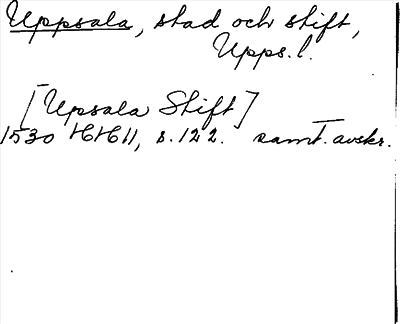 Uppsala, stad och stift,
Upps. l.
[Upsala Stift]
1530 HH 11, s. 122. samt. avskr.